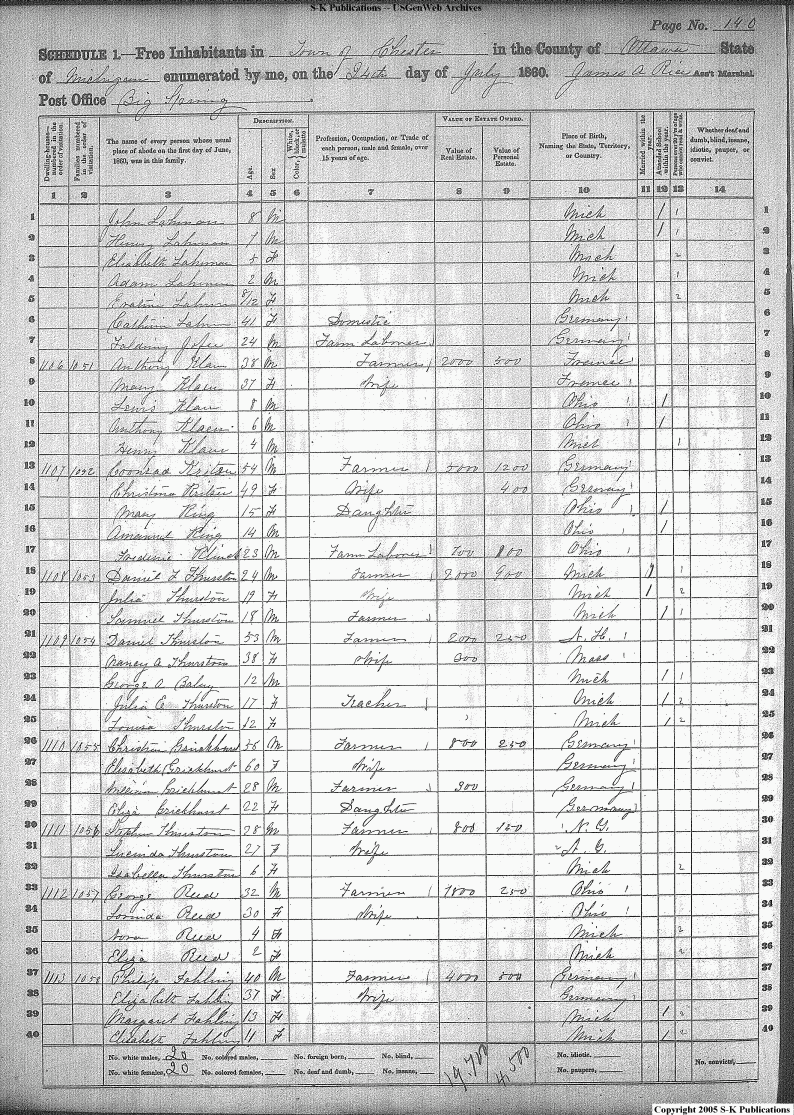 S-K Publications -- USGenWeb Archives
Page No. 140
SCHEDULE 1.—Free Inhabitants in Town of Chester in the County of Ottawa State
of Michigan enumerated by me, on the 24th day of July 1860. James A Rice Ass't Marshal
Post Office Big Spring
Dwelling-houses— numbered in the order of visitation. Families numbered in the order of visitation. The name of every person whose usual place of abode on the first day of June, 1860, was in this family. DESCRIPTION. Age. Sex. Color, White, black, or mulatto. Profession, Occupation, or Trade of each person, male and female, over 15 years of age. VALUE OF ESTATE OWNED. Value of Real Estate. Value of Personal Estate. Place of Birth, Naming the State, Territory, or Country. Married within the year. Attended School within the year. Whether deaf and dumb, blind, insane, idiotic, pauper, or convict.
1 2 3 4 5 6 7 8 9 10 11 12 13 14
1 John Lahman 8 M Mich / 1 1
2 Henry Lahman 7 M Mich / 1 2
3 Elizabeth Lahman 5 F Mich 2 3
4 Adam Lahman 2 M Mich 1 4
5 8/12 F Mich 2 5
6 41 F Domestic Germany 6
7 24 M Farm Laborer Germany 7
8 1106 1051 Anthony Klau 38 M Farmer 2000 500 France 8
9 Mary Klau 37 F Wife France 9
10 Lewis Klau 8 M Ohio / 10
11 Anthony Klau 6 M Ohio / 11
12 Henry Klau 4 M Mich 1 12
13 1107 1052 Coonrad 54 M Farmer 5000 1200 Germany 13
14 Christina 49 F Wife 400 Germany 14
15 Mary King 15 F Daughter Ohio / 15
16 Amanuel King 14 M Ohio / 16
17 Frederic 23 M Farm Laborer 700 800 Ohio 17
18 1108 1053 Daniel F Thurston 24 M Farmer 2000 900 Mich 1 1 18
19 Julia Thurston 19 F Wife Mich 1 2 19
20 Samuel Thurston 18 M Farmer Mich / 1 20
21 1109 1054 Daniel Thurston 53 M Farmer 2000 250 N. H. 21
22 Nancy A Thurston 38 F Wife 300 Mass 22
23 George A 12 M Mich / 1 23
24 Julia C Thurston 17 F Teacher Mich / 2 24
25 Louisa Thurston 12 F Mich / 2 25
26 1110 1055 Christian Brickhurst 56 M Farmer 800 250 Germany 26
27 Elisabeth Brickhurst 60 F Wife Germany 27
28 William Brickhurst 28 M Farmer 300 Germany 28
29 Eliza Brickhurst 22 F Daughter Germany 29
30 1111 1056 Stephen Thurston 28 M Farmer 800 150 30
31 Lucinda Thurston 27 F Wife 31
32 Isabella Thurston 6 F Mich 2 32
33 1112 1057 George Reed 32 M Farmer 1800 250 Ohio 33
34 Lorinda Reed 30 F Wife Ohio 34
35 Nora Reed 4 F Mich 2 35
36 Eliza Reed 2 F Mich 2 36
37 1113 1058 Philip Fahling 40 M Farmer 4000 500 Germany 37
38 Elizabeth Fahling 37 F Wife Germany 38
39 Margaret Fahling 13 F Mich / 2 29
40 Elizabeth Fahling 11 F Mich / 2 40
No. white males, 20 No. colored males, No. foreign born, No. blind, 19,700 4,500 No. idiotic, No. convicts,
No. white females, 20 No. colored females, No. deaf and dumb, No. insane, No. paupers,
Copyright 2005 S-K Publications